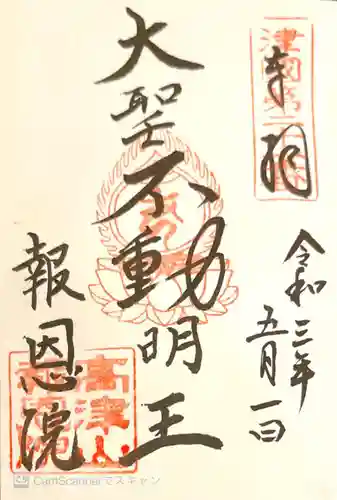 奉拝
令和三年
五月一日
大聖不動明王
報恩院
高津山
CamScannerでスキャン